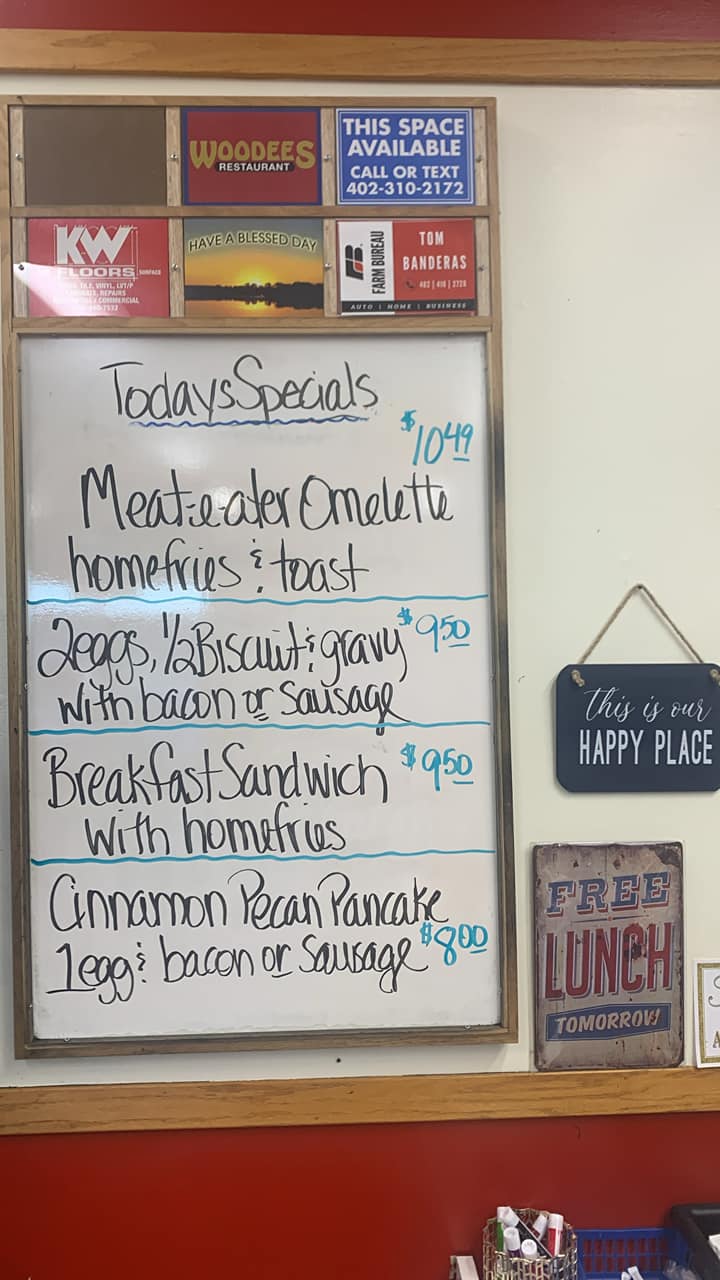 WOODEES
RESTAURANT
THIS SPACE
AVAILABLE
CALL OR TEXT
402-310-2172
KW
FLOORS
SURFACE
REPAIRS
COMMERCIAL
HAVE A BLESSED DAY
FARM BUREAU
TOM
BANDERAS
AUTO | HOME | BUSINESS
Todays Specials
$10 49
Meat-e-ater Omelette
homefries & toast
2eggs, 1/2 Biscuit & gravy $9 50
with bacon or Sausage
Breakfast Sandwich $9 50
with homefries
Cinnamon Pecan Pancake
1egg & bacon or Sausage $8 00
this is our
HAPPY PLACE
FREE
LUNCH
TOMORROW